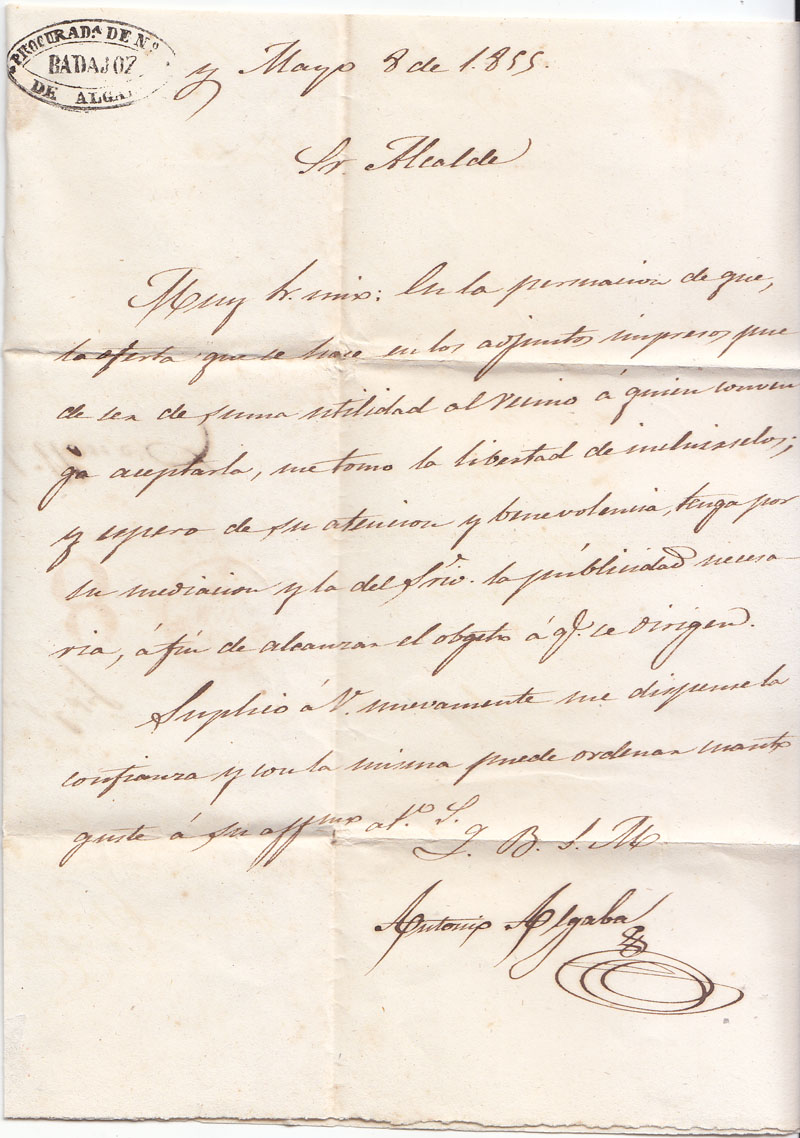 PROCURADª DE Nº
BADAJOZ
DE ALGA
y Mayo 8 de 1.855.
Sr. Alcalde
Muy Sr. mio: En la persuacion de que,
la oferta que se hace en los adjuntos impresos pue
de ser de suma utilidad al vecino á quien conven
ga aceptarla, me tomo la libertad de incluirselos;
y espero de su atencion y benevolencia, tenga por
su mediacion y la del Srio. la públicidad necesa
ria, á fin de alcanzar el obgeto á q.e se dirigen.
Suplico á V. nuevamente me dispense la
confianza y con la misma puede ordenar cuanto
guste á su affmo S.
Q. B. S. M
Antonio Algaba